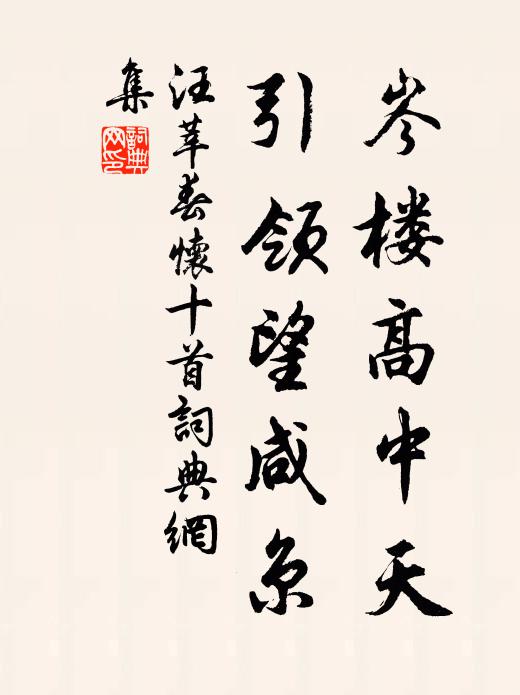 岑楼高中天
引领望咸京
汪莘春懷十首詞典網
集
詞典網印